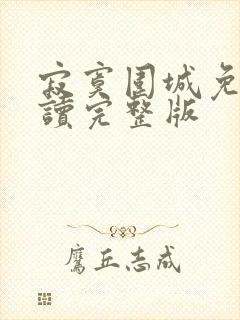 寂寞围城免
讀完整版
鷹丘志成